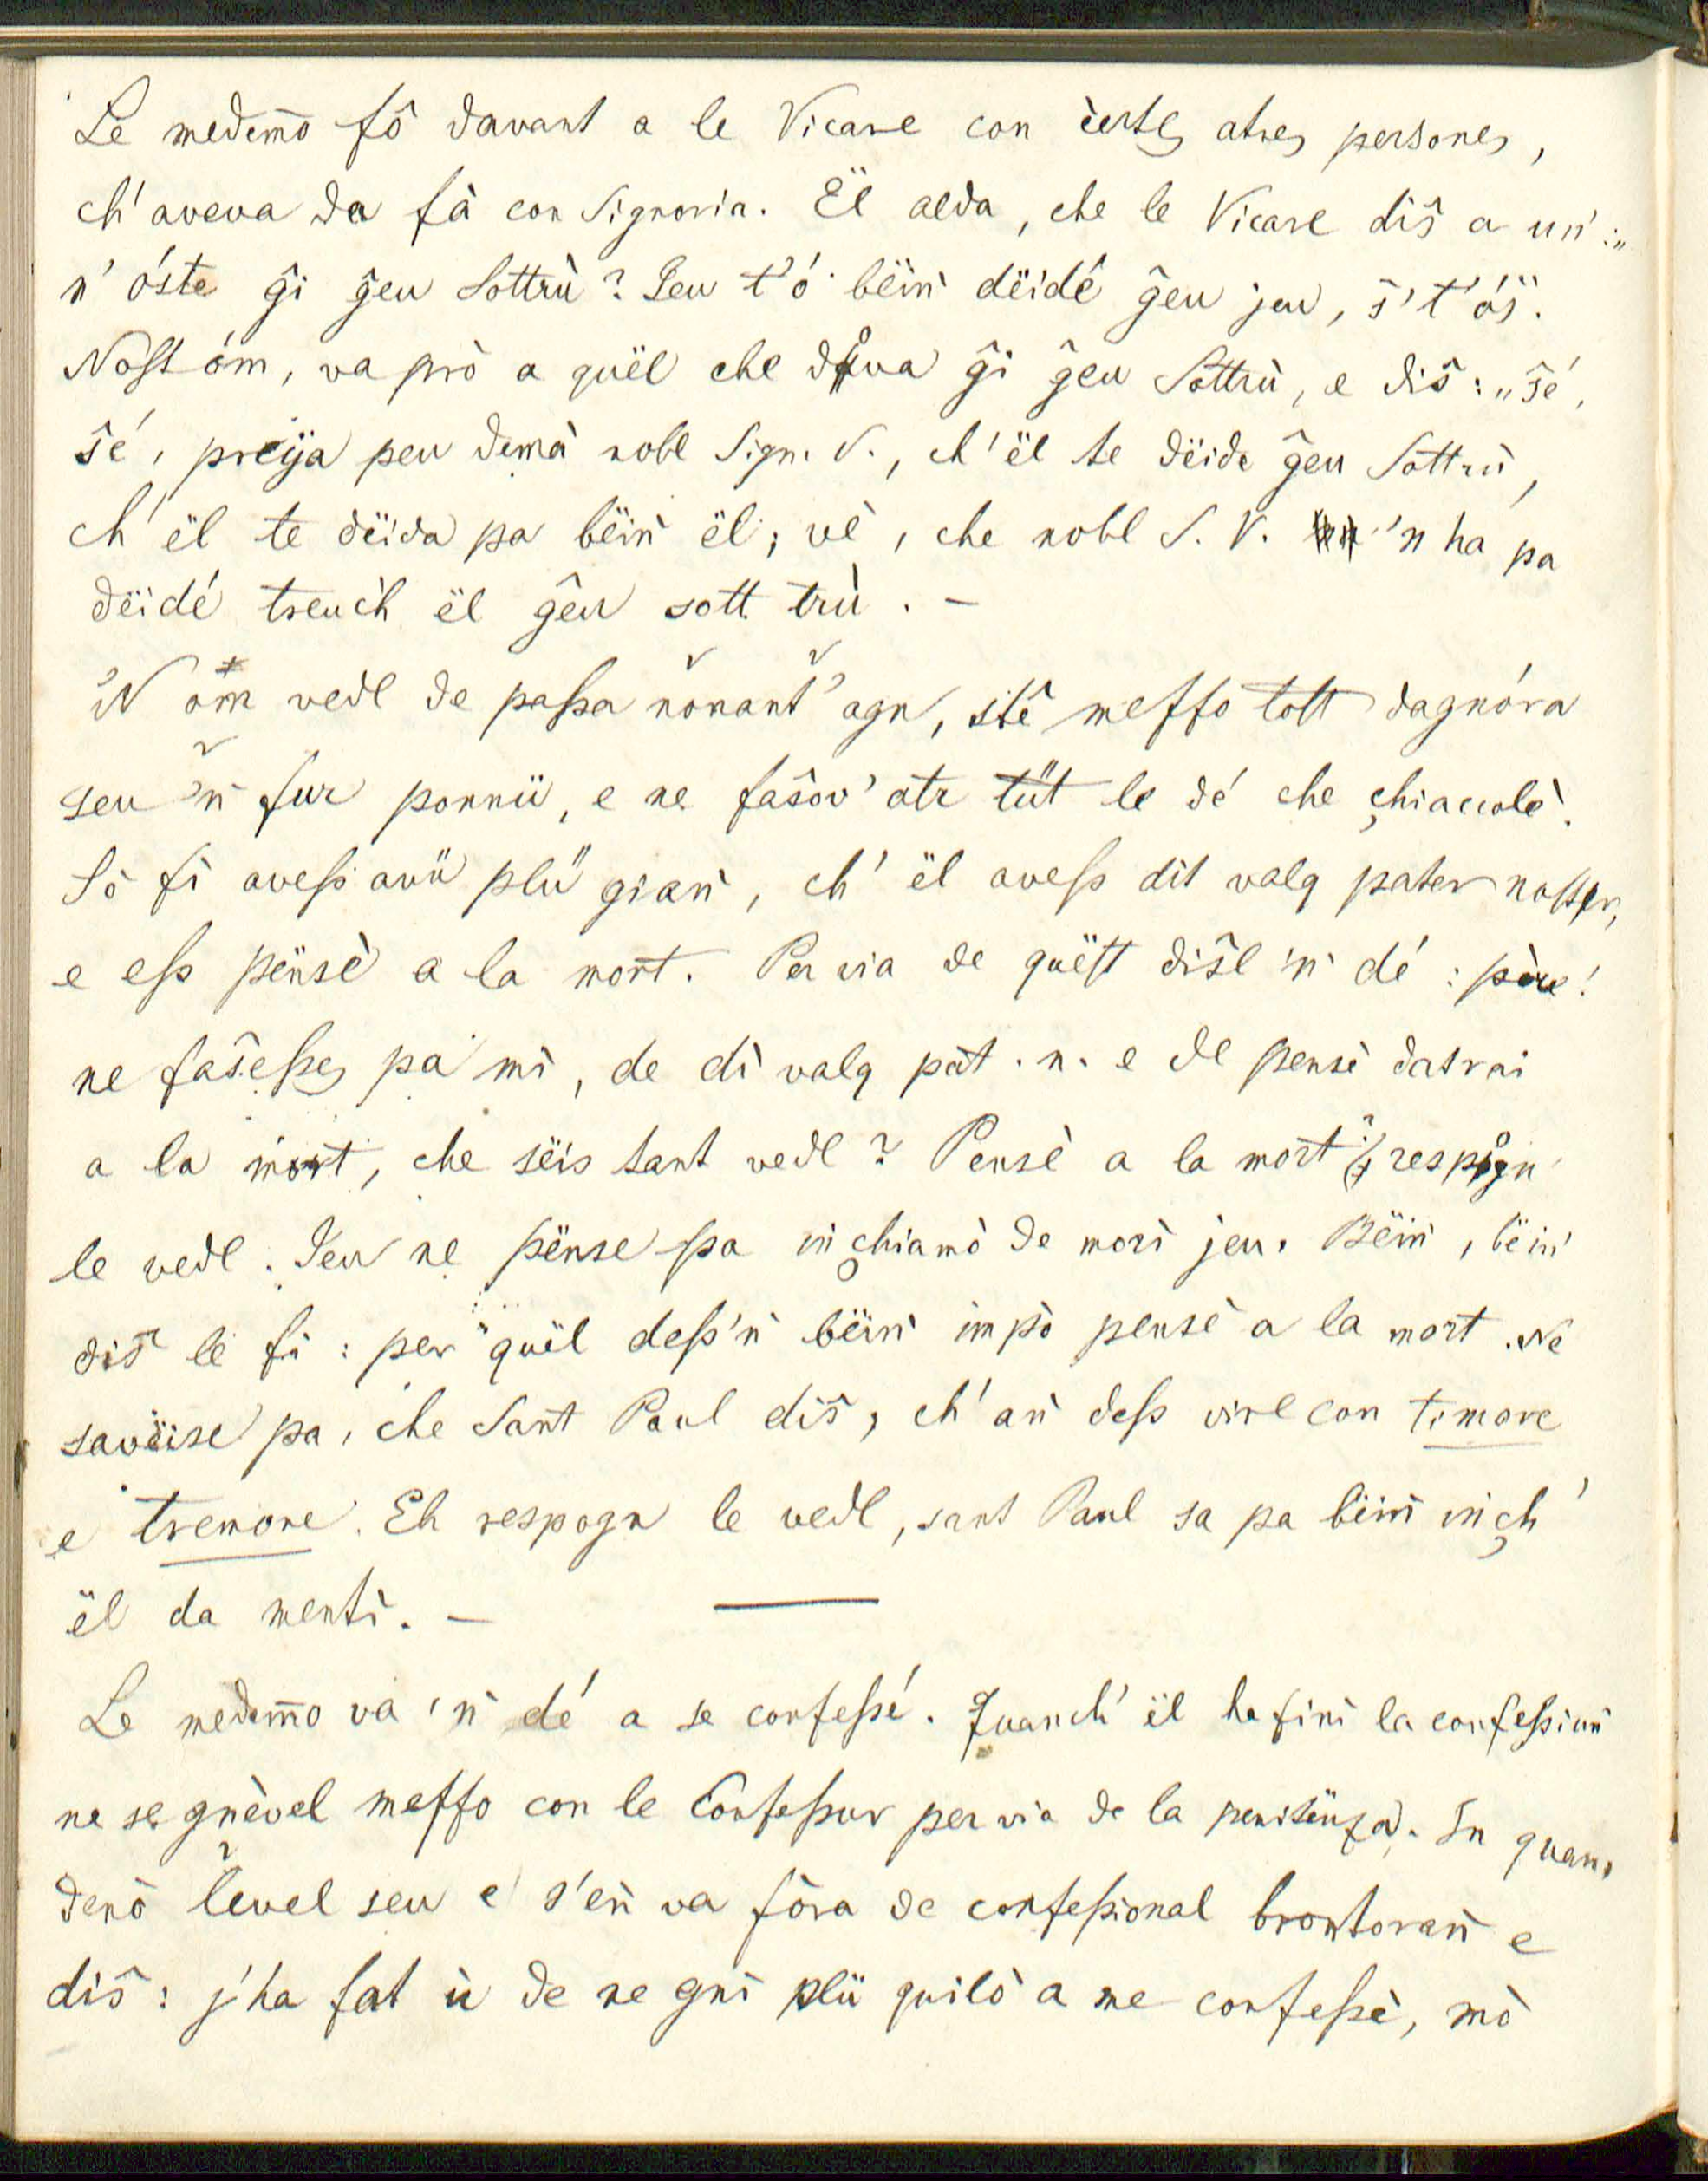 Le medem̄o fô davant a le Vicare con c̀ertes atres persones,
ch'aveva da fà con Signoria. Ël alda, che le Vicare diŝ a un':„
n'óste ĝi ĝeu Sottrù? Jeu t'ó bëiǹ dëidé ĝeu jeu, ŝ't'óŝ".
Nosst óm, va prò a quël che dôva ĝi ĝeu Sottrù, e diŝ: „ŝé,
ŝé, preÿa peu demà nobl Sign. V., ch'ël te dëide ĝeu Sottrù,
ch'ël te dëida pa bëiǹ ël; vè, che nobl S. V. 'n ha pa
dëidé treuc̀h ël ĝeu sott trù. —
'N óm vedl de passa nonant' agn, stê meffo tott dagnóra
seu 'ǹ fur ponnü, e ne faŝov' atr tüt le dé che chiaccolè.
Sò fì avess avü plü gian̄, ch'ël avess dit valq pater noster,
e ess pënsè a la mort. Per via de quëst diŝel 'ǹ dé: père!
ne faŝesses pa mì, de dì valq pat. n. e de pensè datrai
a la mort, che sëis tant vedl? Pensè a la mort? respogn
le vedl. Jeu ne pënse pa iǹ chiamò de morì jeu. Bëiǹ, bëiǹ
diŝ le fì: per quël dess'ǹ bëiǹ impò pensè a la mort. Ne
savëise pa, che Sant Paul diŝ, ch'aǹ dess vire con timore
e tremore. Eh respogn le vedl, sant Paul sa pa bëiǹ iǹ ch'
ël da mentì. —
Le medem̄o va 'ǹ dé a se confessé. Quanch' ël ha finì la confessiun̄
ne se gnèvel meffo con le Confessur per via de la penitënza. In quan„
denò level seu e s'eǹ va fòra de confessional brontoraǹ e
diŝ: j'ha fat ù de ne gnì plü quilò a me confessè, mò